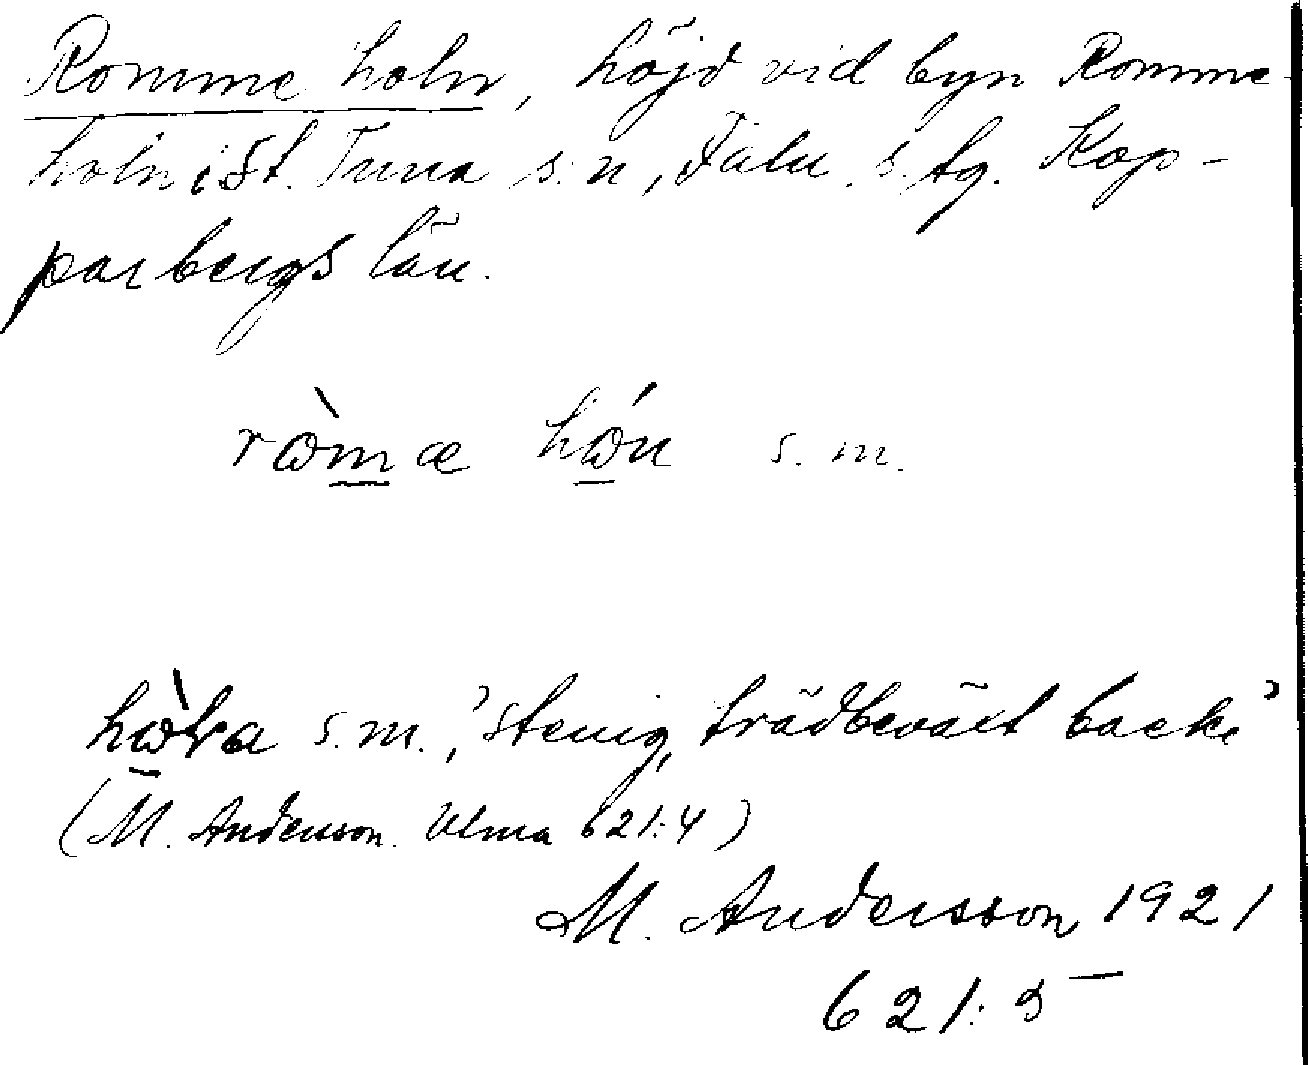 Romme holn, höjd vid byn Romme-
holn i St. Tuna s:n, Falu s. tg. Kop-
parbergs län.
ròmæ hón s. m.
s.m., 'stenig, trädbeväxt backe'
(M. Andersson. Ulma 621:4)
M. Andersson 1921
621:5